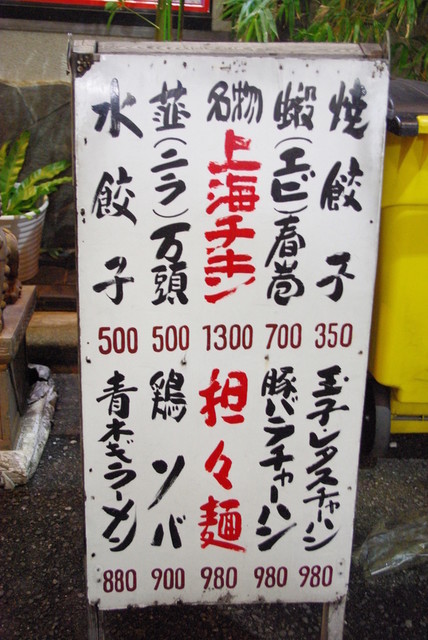 焼餃子
350
蝦(エビ)春巻
700
名物
上海チキン
1300
韮(ニラ)万頭
500
水餃子
500
玉子・レタスチャーハン
980
豚バラチャーハン
980
担々麺
980
鶏ソバ
900
青ネギラーメン
880